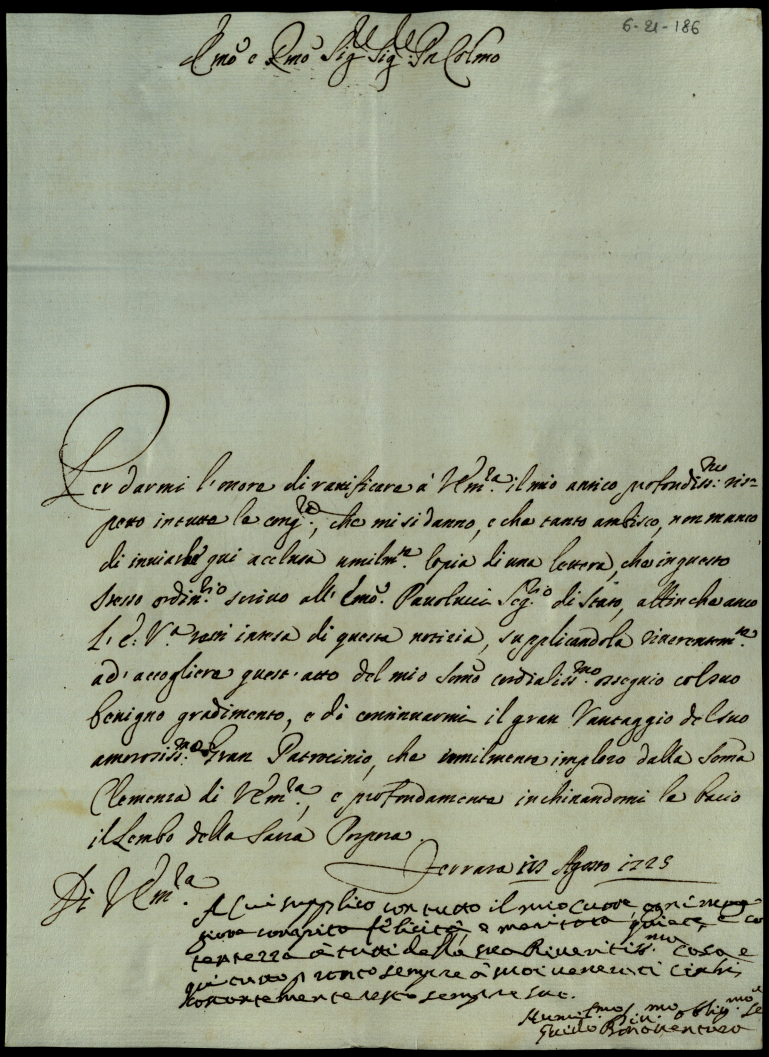 6-21-186
Em̃o e Rm̃o Sig.re Sig.re Pñ Colmo
Per darmi l'onore di ratificare à V. Em̃.za il mio antico profondiss.mo ris=
petto in tutte le cong.re, che mi si danno, e che tanto ambisco, non manco
di inviarle qui acclusa umilm.te Copia di una lettera, che in questo
stesso ordin.rio scrivo all' Em̃o. Pauolucci Seg.rio di Stato, affinche anco
l' E: V.a resti intesa di questa notizia, supplicandola riverentem.te
ad' accogliere quest' atto del mio som̃o cordialiss.mo ossequio col suo
benigno gradimento, e di continuarmi il gran Vantaggio del suo
amorosiss.mo Gran Patrocinio, che umilmente imploro dalla som̃a
Clemenza di V. Em̃.za, e profondamente inchinandomi le bacio
il Lembo della Sacra Porpora.
Ferrara Agosto 1725
Di V. Em̃.za
A Cui supplico con tutto il mio Cuore, ogni
compita felicità, e meritata quiete, e co
tentezza à tutti della sua Riveritiss.ma Casa e
qui tutto pronto sempre à suoi venerati Cenni,
costantemente resto sempre suo.
Humil.mo Div.mo oblig.mo Se
Guido Bonaventura